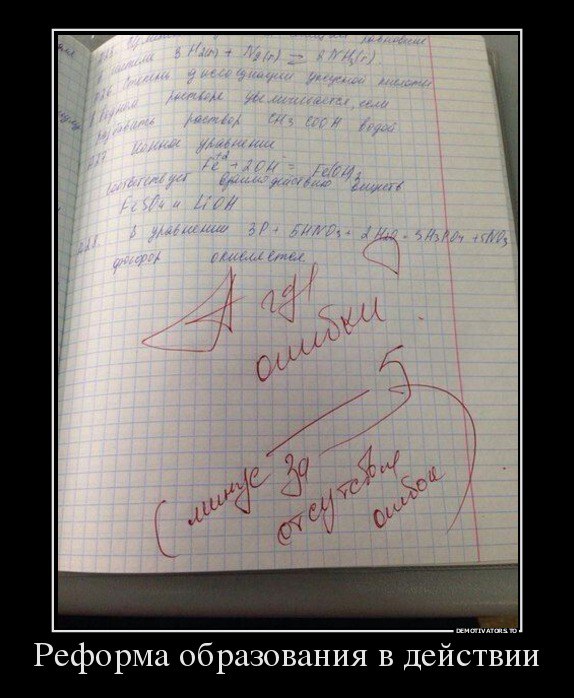 3 H2(г) + N2(г) = 2 NH3(г).
А26. Степень диссоциации уксусной кислоты
в водном растворе увеличивается, если
разбавить раствор CH3COOH водой
А27 Ионное уравнение
Fe+2 + 2OH = Fe(OH)2
соответствует взаимодействию веществ
FeSO4 и LiOH
А28. В уравнении 3P + 5HNO3 + 2H2O = 3H3PO4 + 5NO
фосфор окисляется
А где
ошибки ?
5
(минус за
отсутствие
ошибок)
DEMOTIVATORS.TO
Реформа образования в действии